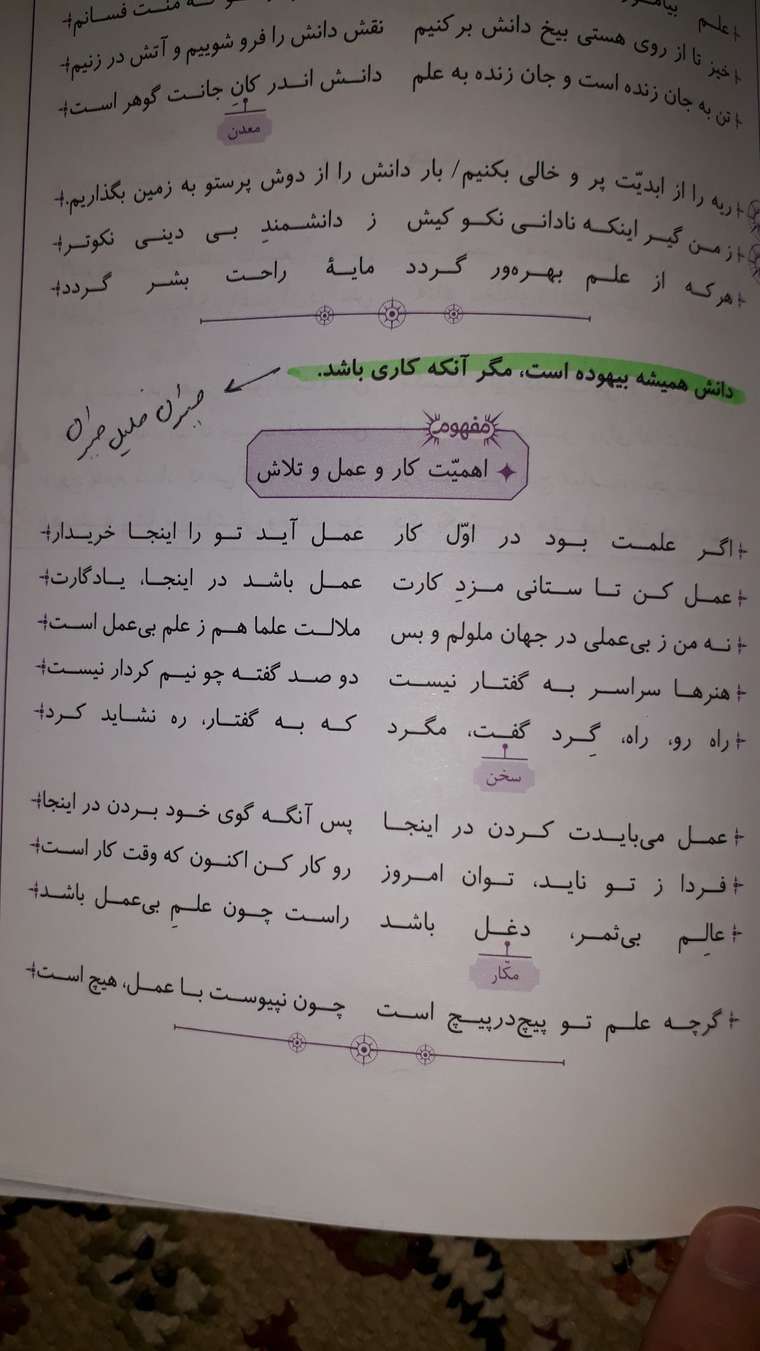 علم
منت فسانم
خیز تا از روی هستی بیخ دانش برکنیم نقش دانش را فرو شوییم و آتش در زنیم
تن به جان زنده است و جان زنده به علم دانش اندر کانِ جانت گوهر است
معدن
ریه را از ابدیّت پر و خالی بکنیم/ بار دانش را از دوش پرستو به زمین بگذاریم.
ز من گیر اینکه نادانی نکو کیش ز دانشمندِ بی دینی نکوتر
هرکه از علم بهره‌ور گردد مایهٔ راحت بشر گردد
دانش همیشه بیهوده است، مگر آنکه کاری باشد.
جبران خلیل جبران
مفهوم
اهمیّت کار و عمل و تلاش
اگر علمت بود در اوّل کار عمل آید تو را اینجا خریدار
عمل کن تا ستانی مزدِ کارت عمل باشد در اینجا، یادگارت
نه من ز بی‌عملی در جهان ملولم و بس ملالت علما هم ز علم بی‌عمل است
هنرها سراسر به گفتار نیست دو صد گفته چو نیم کردار نیست
راه رو، راه، گِرد گفت، مگرد که به گفتار، ره نشاید کرد
سخن
عمل می‌بایدت کردن در اینجا پس آنگه گوی خود بردن در اینجا
فردا ز تو ناید، توان امروز رو کار کن اکنون که وقت کار است
عالِم بی‌ثمر، دغل باشد راست چون علمِ بی‌عمل باشد
مکّار
گرچه علم تو پیچ‌درپیچ است چون نپیوست با عمل، هیچ است